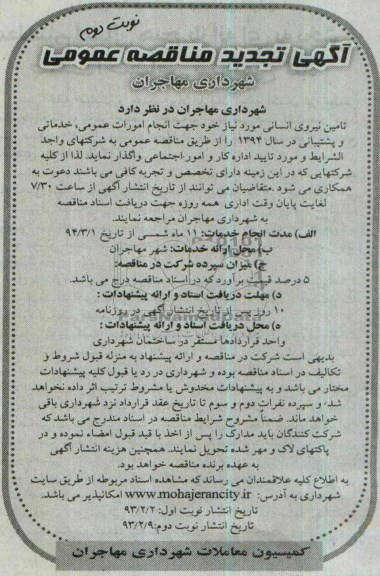 نوبت دوم
آگهی تجدید مناقصه عمومی
شهرداری مهاجران
شهرداری مهاجران در نظر دارد
تامین نیروی انسانی مورد نیاز خود جهت انجام امورات عمومی، خدماتی
و پشتیبانی در سال ۱۳۹۴ را از طریق مناقصه عمومی به شرکتهای واجد
الشرایط و مورد تایید اداره کار و امور اجتماعی واگذار نماید. لذا از کلیه
شرکتهایی که در این زمینه دارای تخصص و تجربه کافی می باشند دعوت به
همکاری می شود. متقاضیان می توانند از تاریخ انتشار آگهی از ساعت ۷/۳۰
لغایت پایان وقت اداری همه روزه جهت دریافت اسناد مناقصه
به شهرداری مهاجران مراجعه نمایند.
الف) مدت انجام خدمات: ۱۱ ماه شمسی از تاریخ ۹۴/۳/۱
ب) محل ارائه خدمات: شهر مهاجران
ج) میزان سپرده شرکت در مناقصه:
۵ درصد قیمت برآورد که در اسناد مناقصه درج می باشد.
د) مهلت دریافت اسناد و ارائه پیشنهادات :
۱۰ روز پس از تاریخ انتشار آگهی در روزنامه
ه) محل دریافت اسناد و ارائه پیشنهادات :
واحد قراردادها مستقر در ساختمان شهرداری
بدیهی است شرکت در مناقصه و ارائه پیشنهاد به منزله قبول شروط و
تکالیف در اسناد مناقصه بوده و شهرداری در رد یا قبول کلیه پیشنهادات
مختار می باشد و به پیشنهادات مخدوش یا مشروط ترتیب اثر داده نخواهد
شد و سپرده نفرات دوم و سوم تا تاریخ عقد قرارداد نزد شهرداری باقی
خواهد ماند. ضمناً مشروح شرایط مناقصه در اسناد مندرج می باشد که
شرکت کنندگان باید مدارک را پس از اخذ با قید قبول امضاء نموده و در
پاکتهای لاک و مهر شده تحویل نمایند. همچنین هزینه انتشار آگهی
به عهده برنده مناقصه خواهد بود.
به اطلاع کلیه علاقمندان می رساند که مشاهده اسناد مربوطه از طریق سایت
شهرداری به آدرس: www.mohajerancity.ir امکانپذیر می باشد.
تاریخ انتشار نوبت اول: ۹۳/۲/۲
تاریخ انتشار نوبت دوم: ۹۳/۲/۹
کمیسیون معاملات شهرداری مهاجران